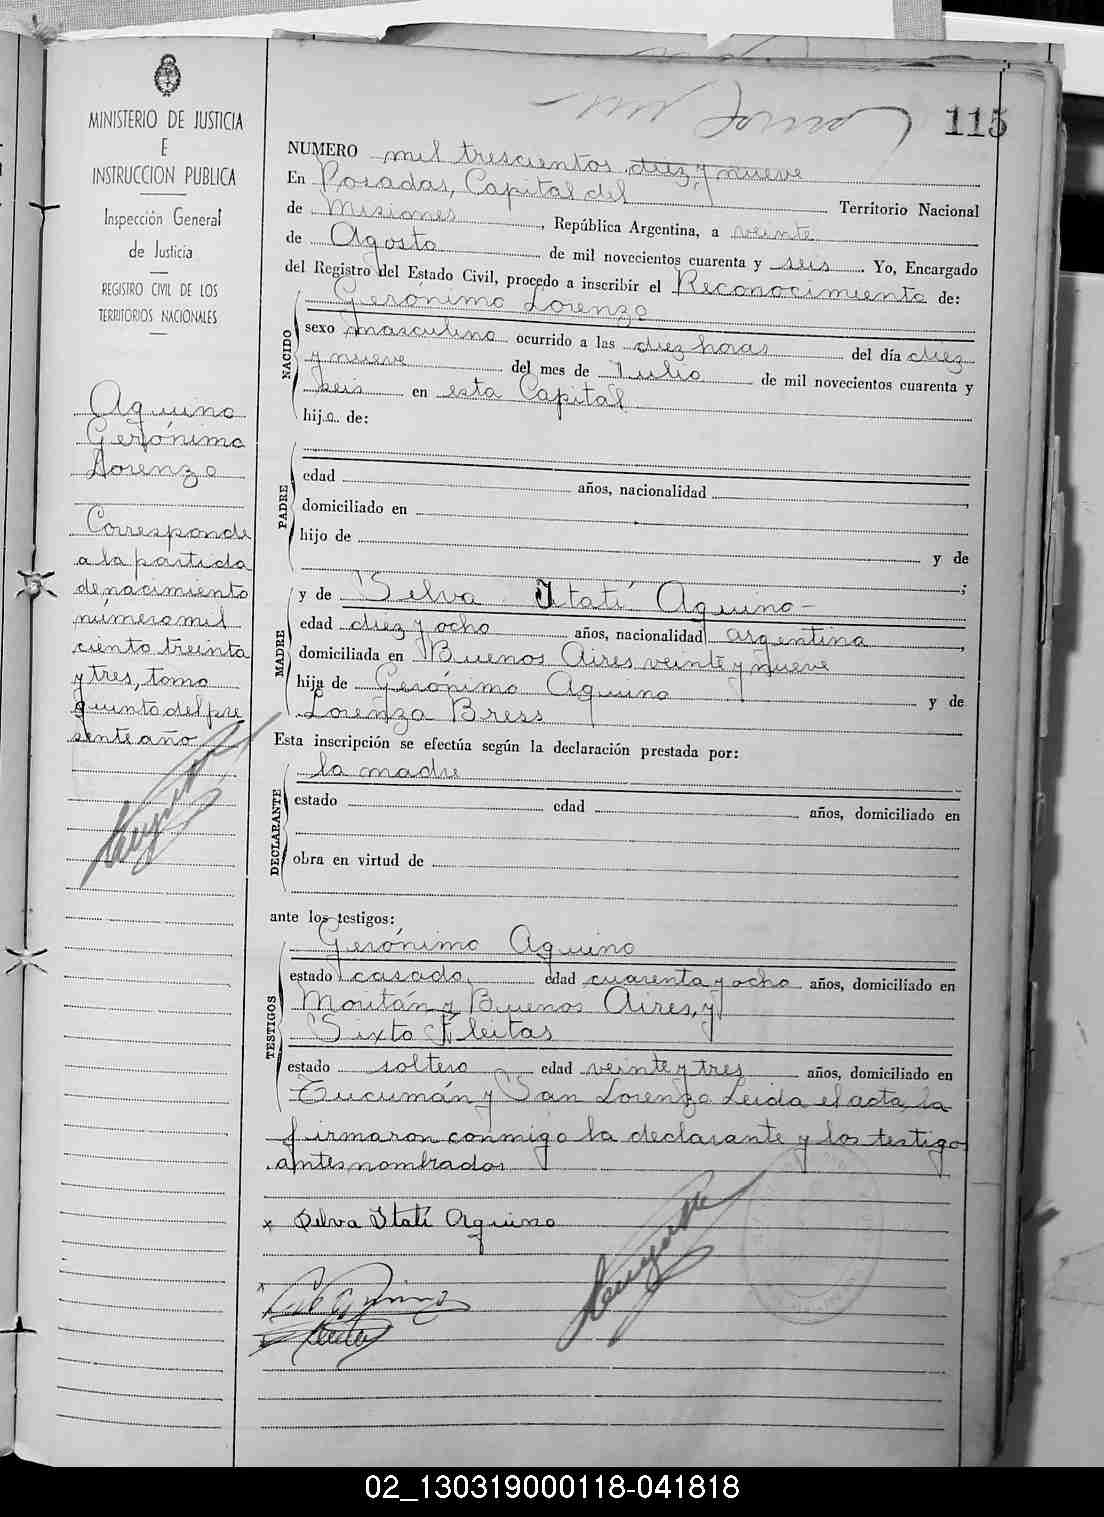 115
MINISTERIO DE JUSTICIA
E
INSTRUCCION PUBLICA
Inspección General
de Justicia
REGISTRO CIVIL DE LOS
TERRITORIOS NACIONALES
Aquino
Gerónimo
Lorenzo
Corresponde
a la partida
de nacimiento
número mil
ciento treinta
y tres, tomo
quinto del pre
sente año
NUMERO mil trescientos diez y nueve
En Posadas, Capital del Territorio Nacional
de Misiones, República Argentina, a veinte
de Agosto de mil novecientos cuarenta y seis. Yo, Encargado
del Registro del Estado Civil, procedo a inscribir el Reconocimiento de:
NACIDO
Gerónimo Lorenzo
sexo masculino ocurrido a las diez horas del día diez
y nueve del mes de Julio de mil novecientos cuarenta y
seis en esta Capital
hijo de:
PADRE
edad años, nacionalidad
domiciliado en
hijo de y de
;
MADRE
y de Selva Itatí Aquino-
edad diez y ocho años, nacionalidad argentina,
domiciliada en Buenos Aires veinte y nueve
hija de Gerónimo Aquino y de
Lorenza Bress
Esta inscripción se efectúa según la declaración prestada por:
DECLARANTE
la madre
estado edad años, domiciliado en
obra en virtud de
ante los testigos:
TESTIGOS
Gerónimo Aquino
estado casado edad cuarenta y ocho años, domiciliado en
y Buenos Aires, y
Sixto Fleitas
estado soltero edad veinte y tres años, domiciliado en
Tucumán y San Lorenzo Leida el acta, la
firmaron conmigo la declarante y los testigos
antes nombrados
x Selva Itatí Aquino
02_130319000118-041818